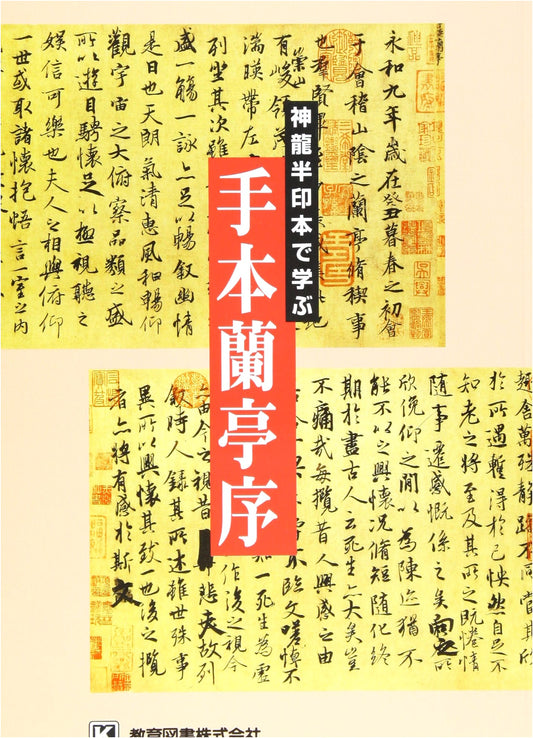 神龍半印本で学ぶ
手本蘭亭序
永和九年歳在癸丑暮春之初會
于會稽山陰之蘭亭脩稧事
也羣賢
崇山
有峻領
湍暎帶左
列坐其次雖
盛一觴一詠亦足以暢叙幽情
是日也天朗氣清惠風和暢仰
觀宇宙之大俯察品類之盛
所以遊目騁懷足以極視聽之
娛信可樂也夫人之相與俯仰
一世或取諸懷抱悟言一室之內
趣舍萬殊靜躁不同當其欣
於所遇蹔得於己怏然自足不
知老之將至及其所之既惓情
隨事遷感慨係之矣向之所
欣俛仰之閒以為陳迹猶不
能不以之興懷況脩短隨化終
期於盡古人云死生亦大矣豈
不痛哉每攬昔人興感之由
臨文嗟悼不
知一死生為虛
作後之視今
由今之視昔
悲夫故列
叙時人錄其所述雖世殊事
異所以興懷其致一也後之攬
者亦將有感於斯文
K 教育図書株式会社